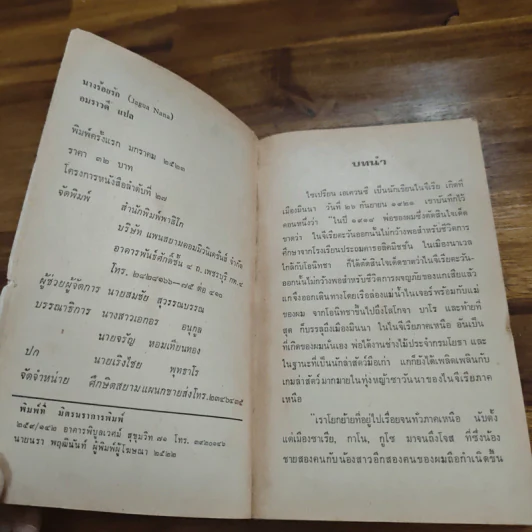 นางร้อยรัก (Jagua Nana)
อมราวดี แปล
พิมพ์ครั้งแรก มกราคม ๒๕๒๑
ราคา ๓๒ บาท
โครงการหนังสือลำดับที่ ๒๗
จัดพิมพ์ สำนักพิมพ์พาสิโก
บริษัท แพนสยามคอมมิวนิเคชั่นส์ จำกัด
อาคารพันธ์ศักดิ์ชั้น ๔ ถ. เพชรบุรี กท. ๔
โทร.
ผู้ช่วยผู้จัดการ นายสมชัย สุวรรณบรรณ
บรรณาธิการ นางสาวเอกอร อนุกูล
นายจรัญ หอมเทียนทอง
ปก นายเริงไชย พุทธาโร
จัดจำหน่าย ศึกษิตสยามแผนกขายส่งโทร.
พิมพ์ที่ มิตรนราการพิมพ์
๒๕๙/๑๔๒ อาคารพิบูลเวศม์ สุขุมวิท ๗๑ โทร.
นายนรา พฤฒินันท์ ผู้พิมพ์ผู้โฆษณา ๒๕๒๒
บทนำ
ไซเปรียน เอเควนซี เป็นนักเขียนไนจีเรีย เกิดที่
เมืองมินนา วันที่ ๒๖ กันยายน ๑๙๒๑ เขาบันทึกไว้
ตอนหนึ่งว่า "ในปี ๑๙๑๘ พ่อของผมซึ่งตัดสินใจเด็ด
ขาดว่า ในจีเรียตะวันออกนั้นไม่กว้างพอสำหรับชีวิตการ
ศึกษาจากโรงเรียนประถมคาธอลิคมิชชั่น ในเมืองนาเวล
ใกล้กับโอนิทชา ก็ได้ตัดสินใจเด็ดขาดว่าไนจีเรียตะวัน-
ออกนั้นไม่กว้างพอสำหรับชีวิตการผจญภัยของแกเสียแล้ว
แกจึงออกเดินทางโดยเรือล่องแม่น้ำไนเจอร์พร้อมกับแม่
ของผม จากโอนิทชาขึ้นไปถึงโลโกจา บาโร และท้ายที่
สุด ก็บรรลุถึงเมืองมินนา ในไนจีเรียภาคเหนือ อันเป็น
ที่เกิดของผมนั่นเอง พ่อได้งานช่างไม้ประจำกรมโยธา และ
ในฐานะที่เป็นนักล่าสัตว์มือเก่า แกก็ยังได้เพลิดเพลินกับ
เกมล่าสัตว์มากมายในทุ่งหญ้าซาวันนาของไนจีเรียภาค
เหนือ
"เราโยกย้ายที่อยู่ไปเรื่อยจนทั่วภาคเหนือ นับตั้ง
แต่เมืองซาเรีย, คาโน, กูโซ มาจนถึงโจส ที่ซึ่งน้อง
ชายสองคนกับน้องสาวอีกสองคนของผมถือกำเนิดขึ้น